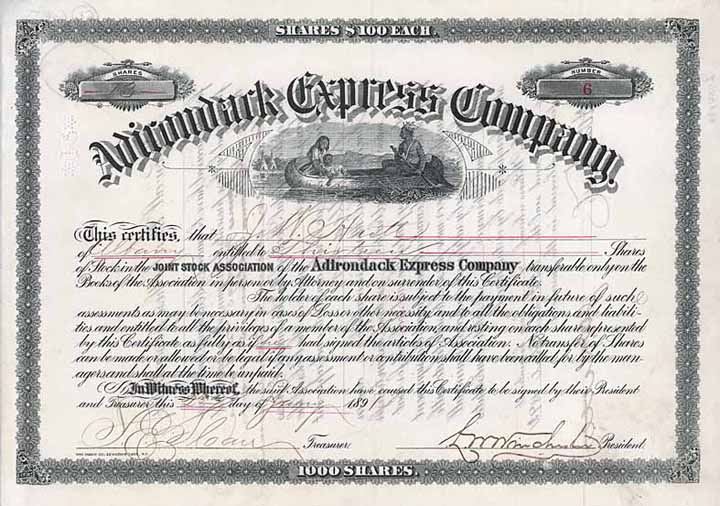 SHARES $100 EACH.
SHARES
NUMBER
6
Adirondack Express Company.
This certifies, that J. W.
of entitled to Shares
of Stock in the JOINT STOCK ASSOCIATION of the Adirondack Express Company transferable only on the
Books of the Association in person or by Attorney and on surrender of this Certificate.
The holder of each share is subject to the payment in future of such
assessments as may be necessary in cases of Loss or other necessity and to all the obligations and liabili-
ties and entitled to all the privileges of a member of the Association, and resting on each share represented
by this Certificate as fully as if he had signed the articles of Association. No transfer of Shares
can be made or allowed or be legal if any assessment or contribution shall have been called for by the man-
agers and shall at the time be unpaid.
In Witness Whereof, the said Association have caused this Certificate to be signed by their President
and Treasurer this day of 1891
Treasurer. President.
1000 SHARES.